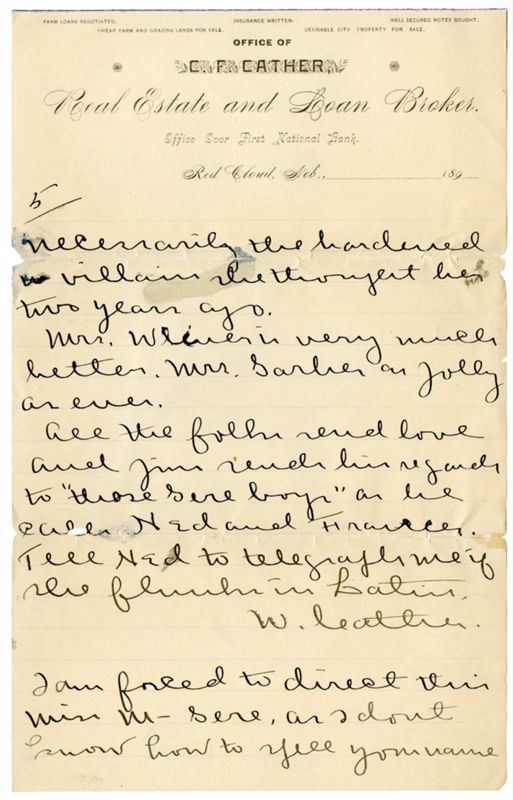 FARM LOANS NEGOTIATED. INSURANCE WRITTEN. WELL SECURED NOTES BOUGHT.
CHEAP FARM AND GRAZING LANDS FOR SALE. DESIRABLE CITY PROPERTY FOR SALE.
OFFICE OF
C. F. CATHER,
Real Estate and Loan Broker.
Office Over First National Bank.
Red Cloud, Neb., 189
5
necessarily the hardened
villain she thought him
two years ago.
Mrs. Wiener is very much
better. Mrs. Garber as jolly
as ever.
All the folks send love
and Jim sends his regards
to "those Gere boys" as he
calls Ned and Frances.
Tell Ned to telegraph me if
she flunks in Latin.
W. Cather.
I am forced to direct this
Miss M— Gere, as I dont
know how to spell your name